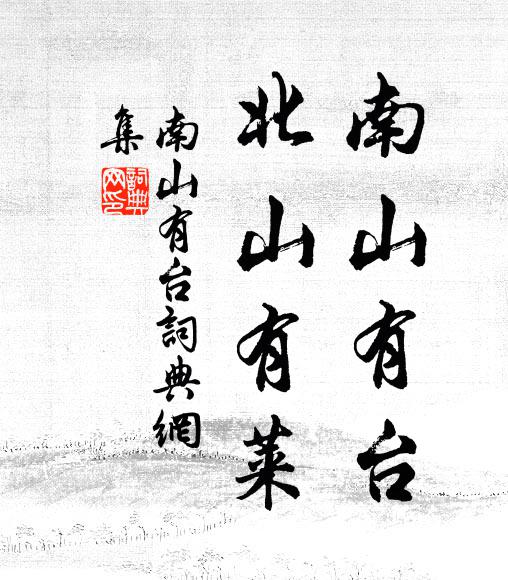 南山有台
北山有萊
南山有台詞典網
集
詞典
网印